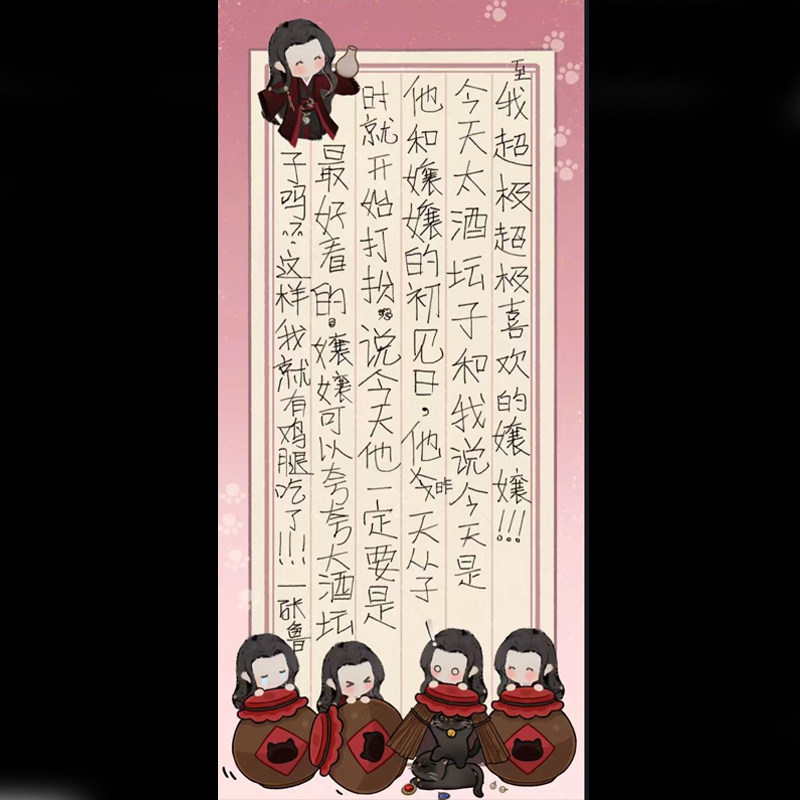 至我超极超极喜欢的孃孃!!!
今天太酒坛子和我说今天是
他和孃孃的初见日，他昨天从子
时就开始打扮。说今天他一定要是
最好看的。孃孃可以夸夸大酒坛
子吗？这样我就有鸡腿吃了!!!
—张鲁